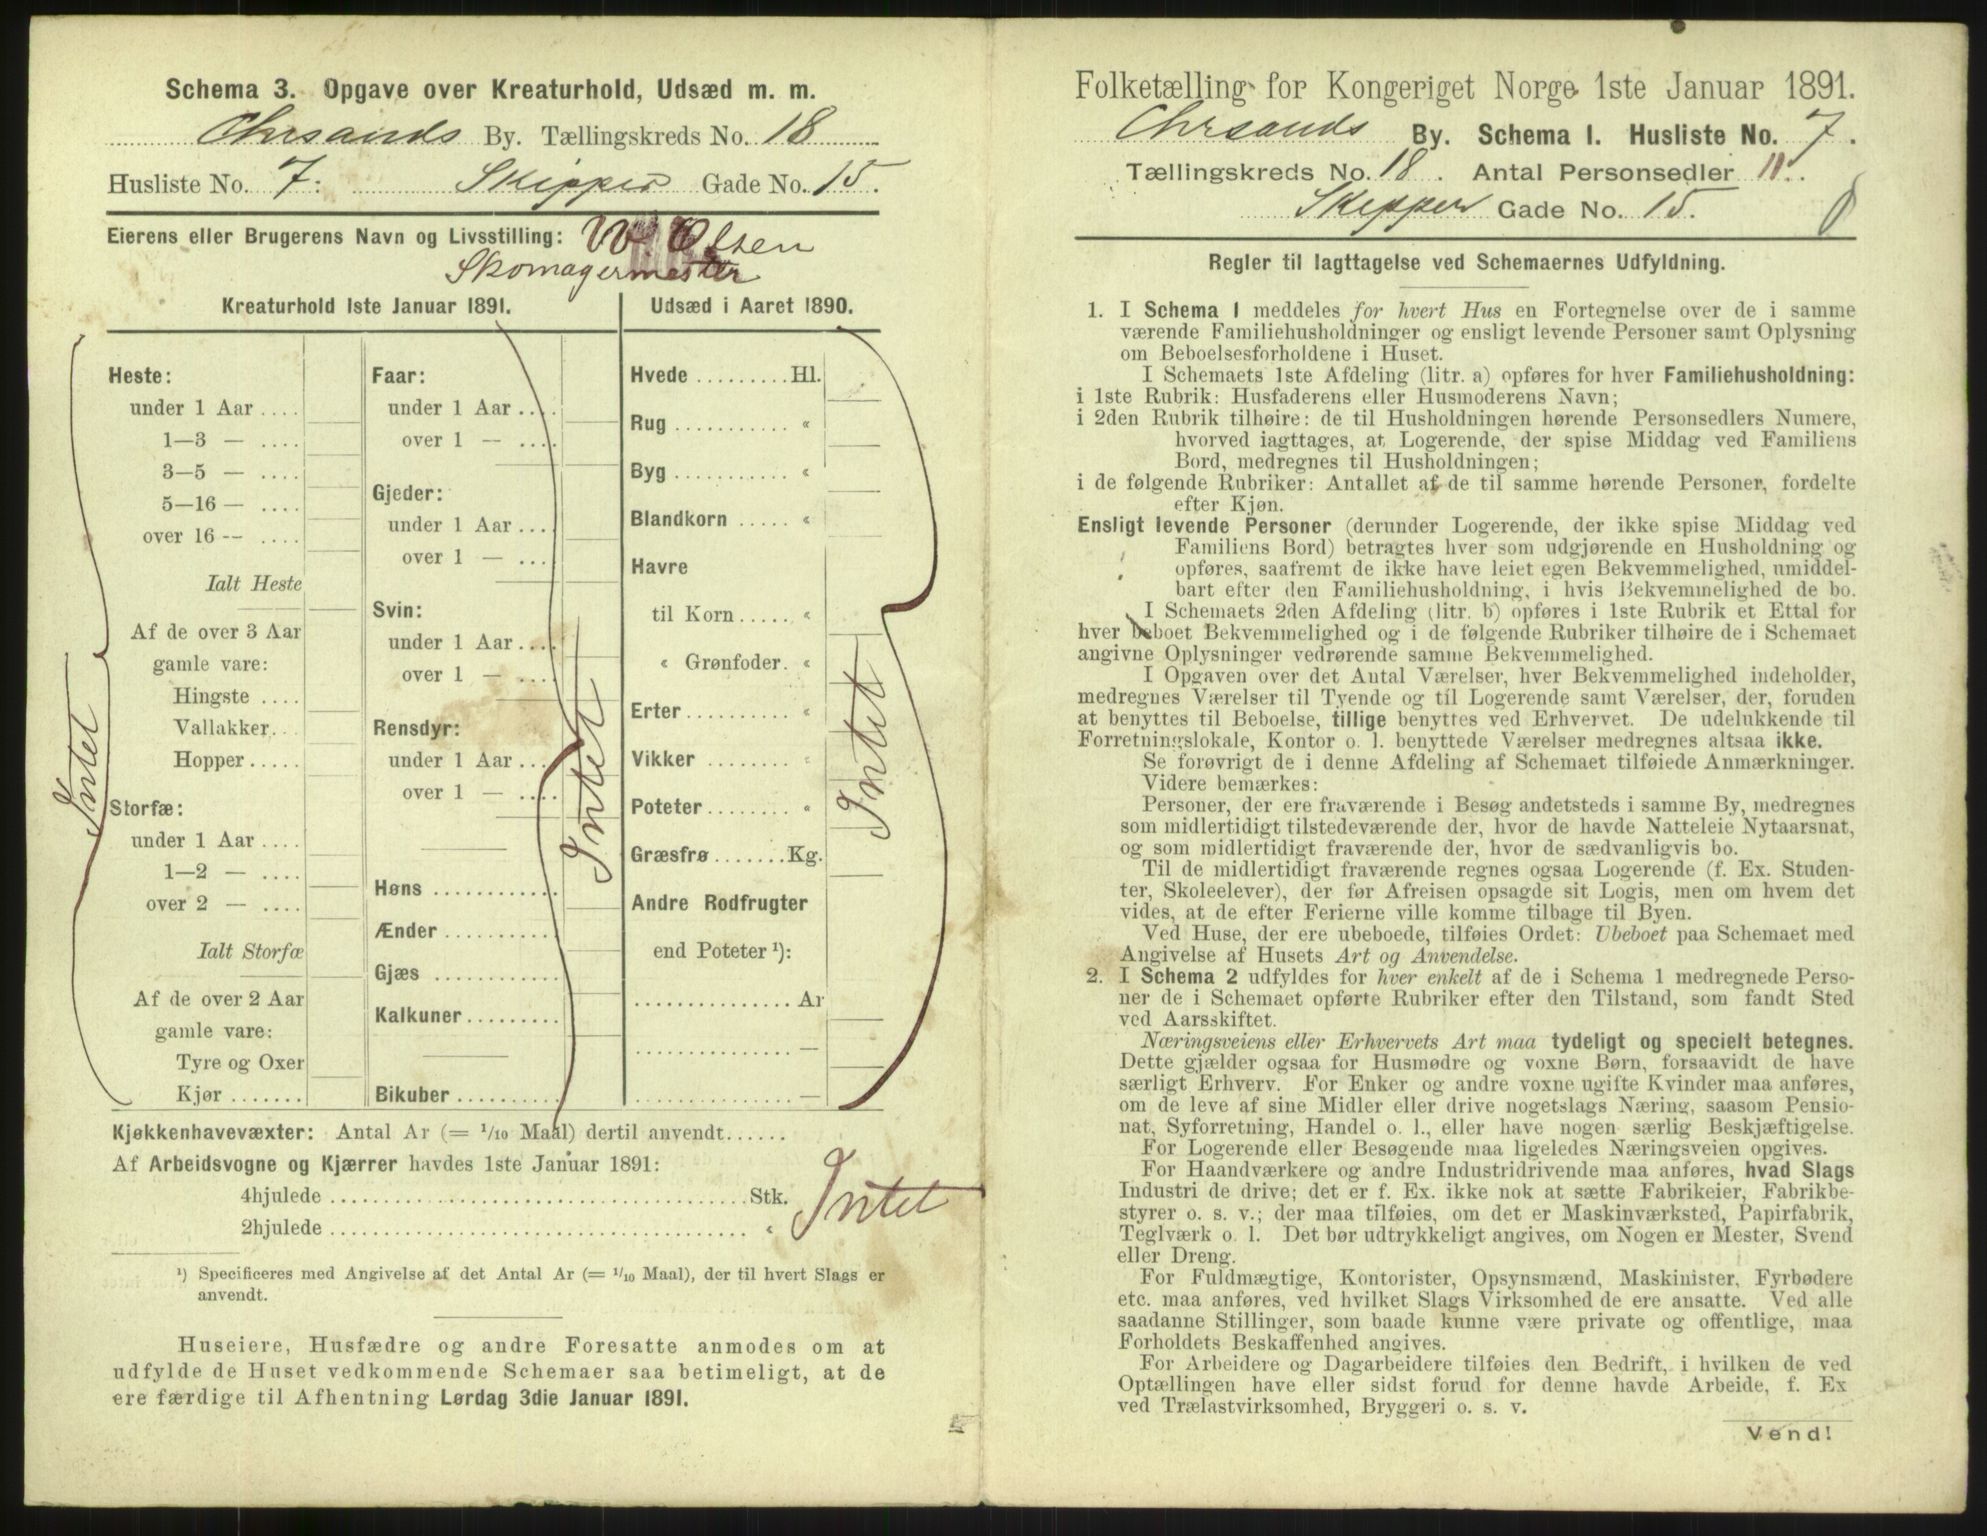 Schema 3. Opgave over Kreaturhold, Udsæd m. m.
Chrsands By. Tællingskreds No. 18
Husliste No. 7. Skipper Gade No. 15.
Eierens eller Brugerens Navn og Livsstilling: W Olsen
Skomagermester
Kreaturhold 1ste Januar 1891.
Heste:
under 1 Aar ....
1—3 — ....
3—5 — ....
5—16 — ....
over 16 -- ....
Ialt Heste
Af de over 3 Aar
gamle vare:
Hingste ....
Vallakker...
Hopper.....
Storfæ:
under 1 Aar ....
1—2 — ....
over 2 — ....
Ialt Storfæ
Af de over 2 Aar
gamle vare:
Tyre og Oxer
Kjør .......
Intet
Faar:
under 1 Aar ....
over 1 — ....
Gjeder:
under 1 Aar ....
over 1 — ....
Svin:
under 1 Aar ....
over 1 — ....
Rensdyr:
under 1 Aar ....
over 1 — ....
Høns ............
Ænder ...........
Gjæs ............
Kalkuner.........
Bikuber ..........
Intet
Udsæd i Aaret 1890.
Hvede .........Hl.
Rug ........... «
Byg ........... «
Blandkorn ..... «
Havre
til Korn..... «
« Grønfoder. «
Erter.......... «
Vikker ........ «
Poteter........ «
Græsfrø.......Kg.
Andre Rodfrugter
end Poteter ¹):
...............Ar
............... —
............... —
Intet
Kjøkkenhavevæxter: Antal Ar (= 1/10 Maal) dertil anvendt......
Af Arbeidsvogne og Kjærrer havdes 1ste Januar 1891:
4hjulede ........................................Stk.
2hjulede ........................................ «
Intet
¹) Specificeres med Angivelse af det Antal Ar (= 1/10 Maal), der til hvert Slags er
anvendt.
Huseiere, Husfædre og andre Foresatte anmodes om at
udfylde de Huset vedkommende Schemaer saa betimeligt, at de
ere færdige til Afhentning Lørdag 3die Januar 1891.
Folketælling for Kongeriget Norge 1ste Januar 1891.
Chrsands By. Schema I. Husliste No. 7.
Tællingskreds No. 18. Antal Personsedler 11.
Skipper Gade No. 15.
Regler til Iagttagelse ved Schemaernes Udfyldning.
1. I Schema 1 meddeles for hvert Hus en Fortegnelse over de i samme
værende Familiehusholdninger og ensligt levende Personer samt Oplysning
om Beboelsesforholdene i Huset.
I Schemaets 1ste Afdeling (litr. a) opføres for hver Familiehusholdning:
i 1ste Rubrik: Husfaderens eller Husmoderens Navn;
i 2den Rubrik tilhøire: de til Husholdningen hørende Personsedlers Numere,
hvorved iagttages, at Logerende, der spise Middag ved Familiens
Bord, medregnes til Husholdningen;
i de følgende Rubriker: Antallet af de til samme hørende Personer, fordelte
efter Kjøn.
Ensligt levende Personer (derunder Logerende, der ikke spise Middag ved
Familiens Bord) betragtes hver som udgjørende en Husholdning og
opføres, saafremt de ikke have leiet egen Bekvemmelighed, umiddel-
bart efter den Familiehusholdning, i hvis Bekvemmelighed de bo.
I Schemaets 2den Afdeling (litr. b) opføres i 1ste Rubrik et Ettal for
hver beboet Bekvemmelighed og i de følgende Rubriker tilhøire de i Schemaet
angivne Oplysninger vedrørende samme Bekvemmelighed.
I Opgaven over det Antal Værelser, hver Bekvemmelighed indeholder,
medregnes Værelser til Tyende og til Logerende samt Værelser, der, foruden
at benyttes til Beboelse, tillige benyttes ved Erhvervet. De udelukkende til
Forretningslokale, Kontor o. l. benyttede Værelser medregnes altsaa ikke.
Se forøvrigt de i denne Afdeling af Schemaet tilføiede Anmærkninger.
Videre bemærkes:
Personer, der ere fraværende i Besøg andetsteds i samme By, medregnes
som midlertidigt tilstedeværende der, hvor de havde Natteleie Nytaarsnat,
og som midlertidigt fraværende der, hvor de sædvanligvis bo.
Til de midlertidigt fraværende regnes ogsaa Logerende (f. Ex. Studen-
ter, Skoleelever), der før Afreisen opsagde sit Logis, men om hvem det
vides, at de efter Ferierne ville komme tilbage til Byen.
Ved Huse, der ere ubeboede, tilføies Ordet: Ubeboet paa Schemaet med
Angivelse af Husets Art og Anvendelse.
2. I Schema 2 udfyldes for hver enkelt af de i Schema 1 medregnede Perso-
ner de i Schemaet opførte Rubriker efter den Tilstand, som fandt Sted
ved Aarsskiftet.
Næringsveiens eller Erhvervets Art maa tydeligt og specielt betegnes.
Dette gjælder ogsaa for Husmødre og voxne Børn, forsaavidt de have
særligt Erhverv. For Enker og andre voxne ugifte Kvinder maa anføres,
om de leve af sine Midler eller drive nogetslags Næring, saasom Pensio-
nat, Syforretning, Handel o. l., eller have nogen særlig Beskjæftigelse.
For Logerende eller Besøgende maa ligeledes Næringsveien opgives.
For Haandværkere og andre Industridrivende maa anføres, hvad Slags
Industri de drive; det er f. Ex. ikke nok at sætte Fabrikeier, Fabrikbe-
styrer o. s. v.; der maa tilføies, om det er Maskinværksted, Papirfabrik,
Teglværk o. l. Det bør udtrykkeligt angives, om Nogen er Mester, Svend
eller Dreng.
For Fuldmægtige, Kontorister, Opsynsmænd, Maskinister, Fyrbødere
etc. maa anføres, ved hvilket Slags Virksomhed de ere ansatte. Ved alle
saadanne Stillinger, som baade kunne være private og offentlige, maa
Forholdets Beskaffenhed angives.
For Arbeidere og Dagarbeidere tilføies den Bedrift, i hvilken de ved
Optællingen have eller sidst forud for denne havde Arbeide, f. Ex
ved Trælastvirksomhed, Bryggeri o. s. v.
Vend!